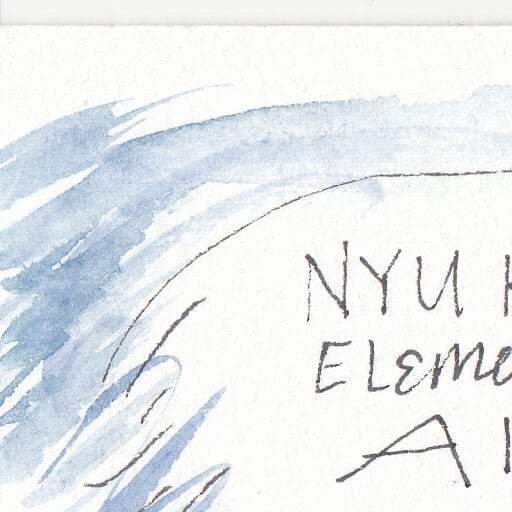 NYU
ELEME
A